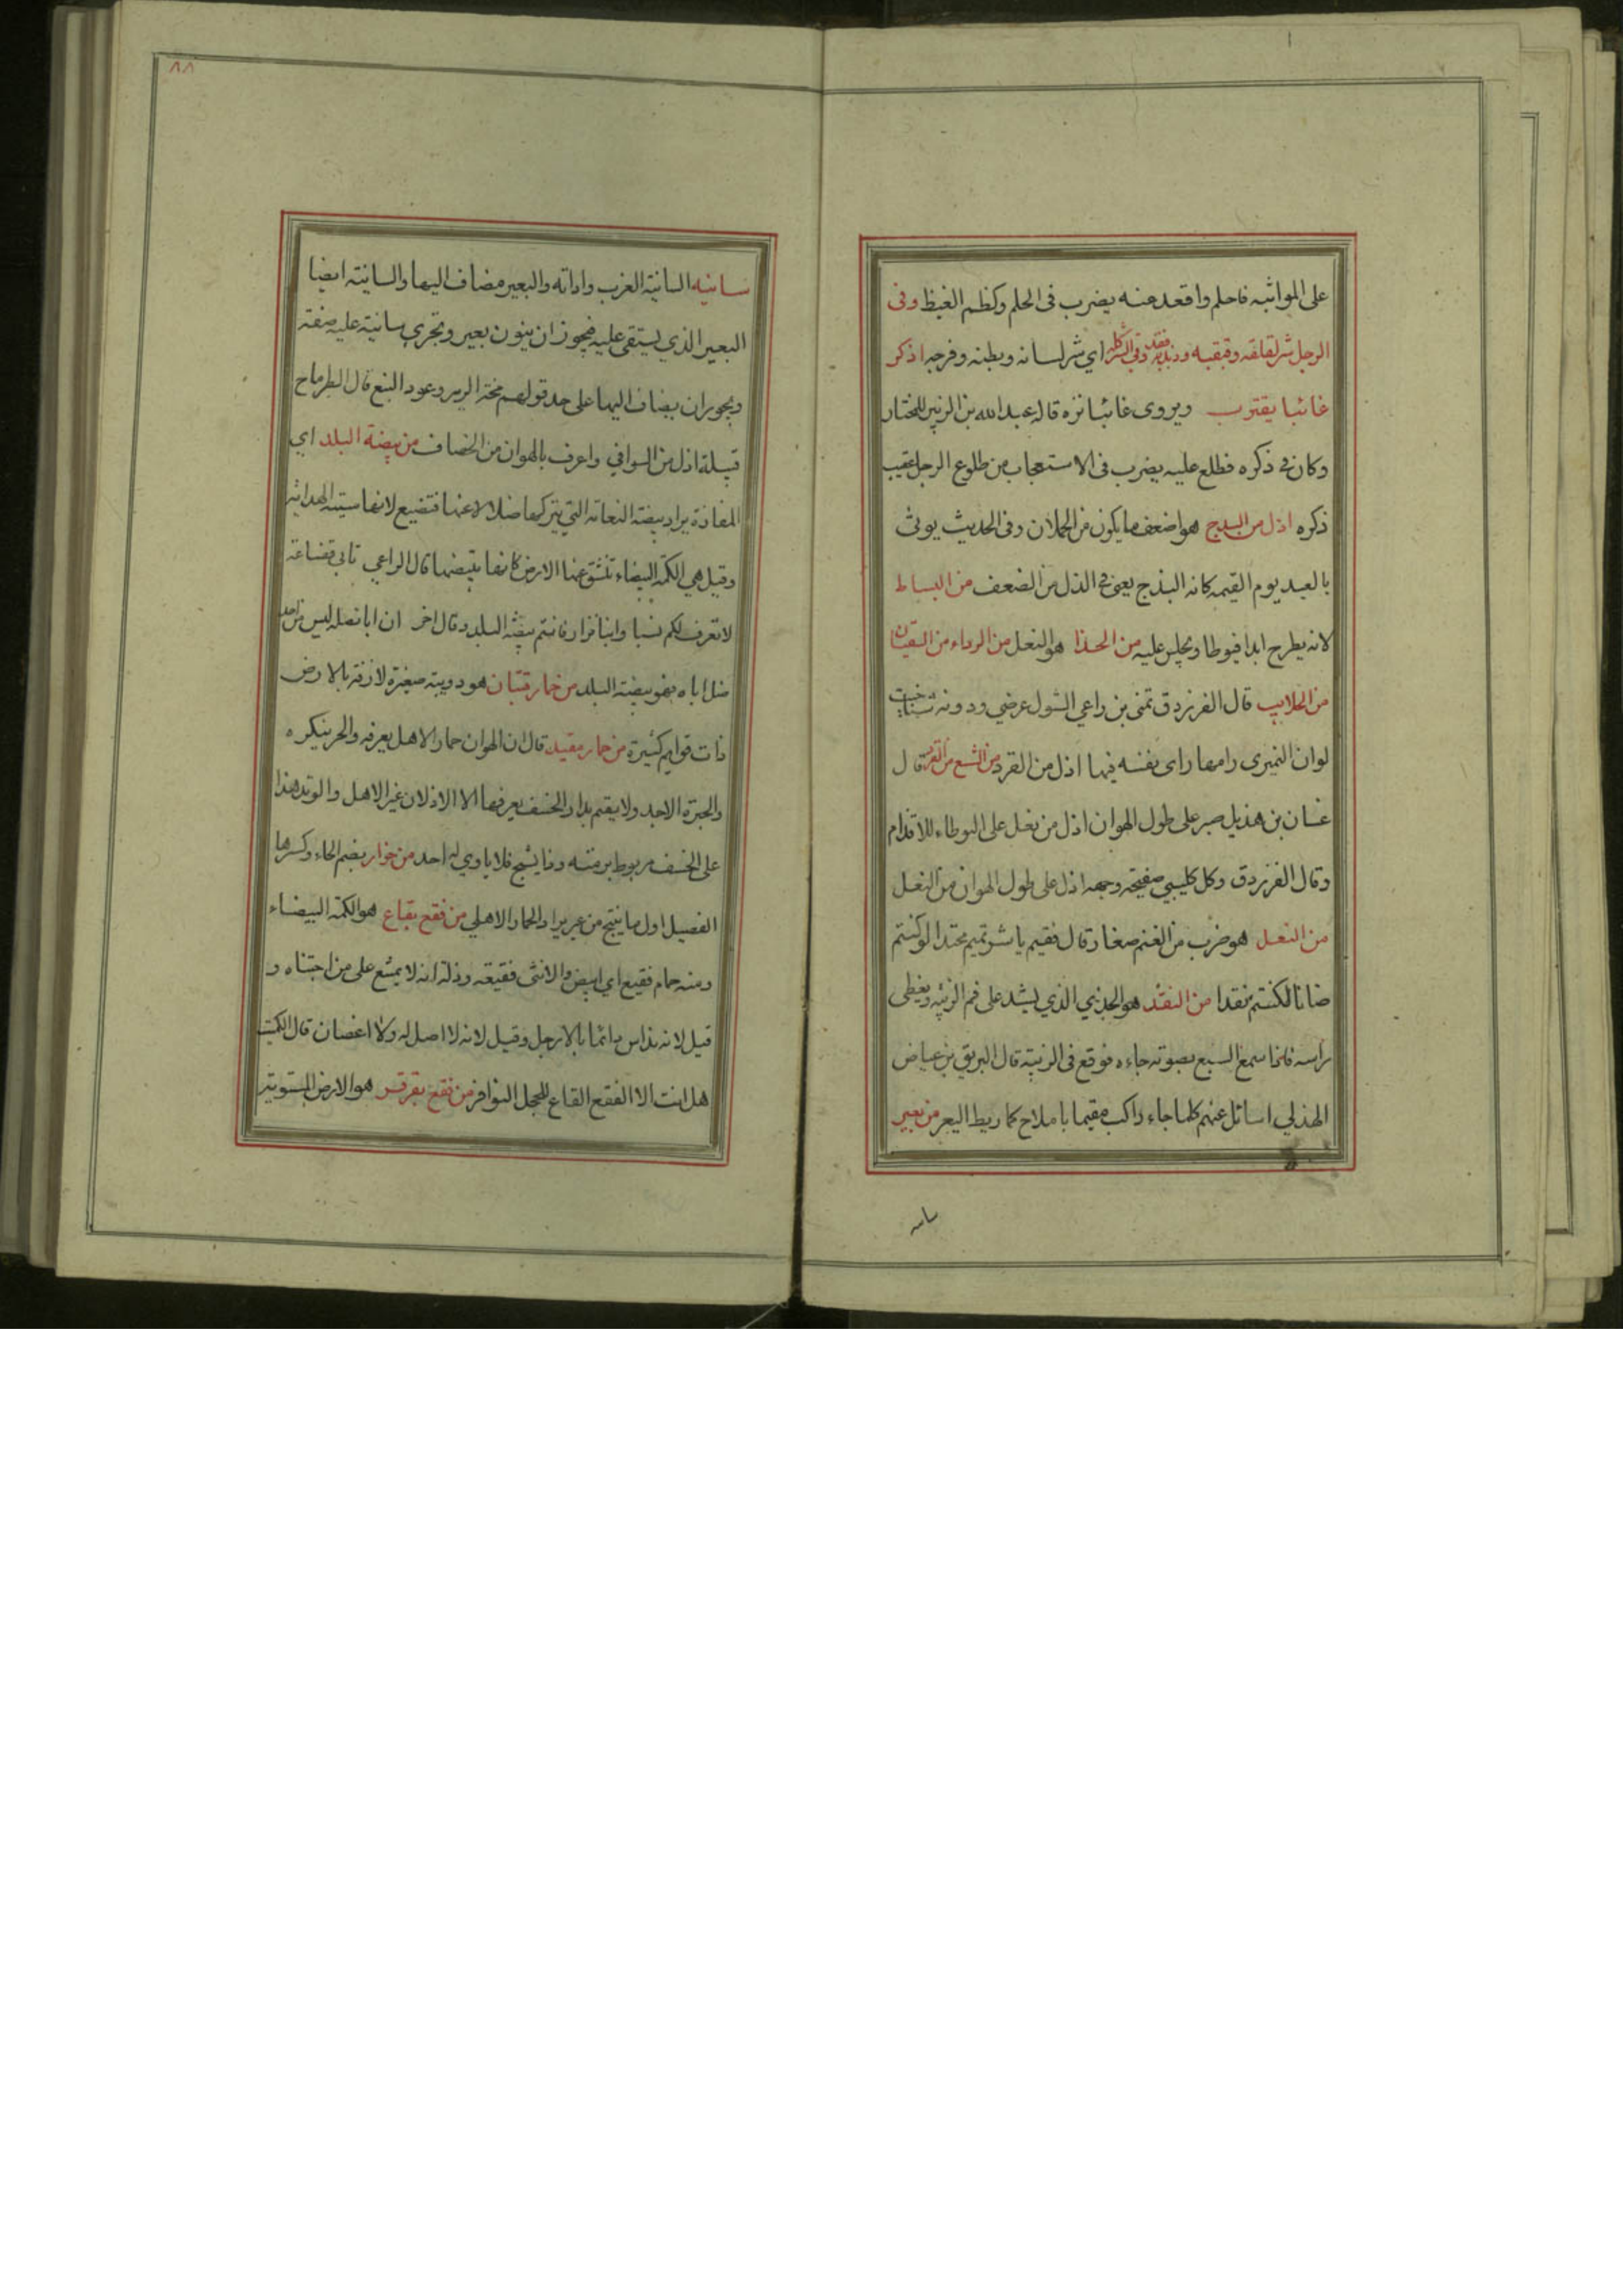 على المواثبه فاحلم واقعد عنه يضرب فى الحلم وكظم الغيظ وقى
الرجل شر لقلقه وقبقبه وذبذبه فقد وقى الشر كله اي شر لسانه وبطنه وفرجه اذكر
غائبا يقترب ويروى غائبا تره قاله عبد الله بن الزبير للمختار
وكان فى ذكره فطلع عليه يضرب فى الاستعجاب من طلوع الرجل عقيب
ذكره اذل من البذج هو اضعف ما يكون من الحملان وفى الحديث يوتى
بالعبد يوم القيمه كانه البذج يعنى فى الذل من الضعف من البساط
لانه يطرح ابدا فيوطا ويجلس عليه من الحذا هو النعل من الرداء من السقبان
من الحلايب قال الفرزدق تمنى بن راعي الشول عرضي ودونه
لوان النميرى رامها راى نفسه فيها اذل من القرد من الشسع من القرد قال
غسان بن هذيل صبر على طول الهوان اذل من نعل على الوطاء للاقدام
وقال الفرزدق وكل كليبي صفيحة وجهه اذل على طول الهوان من النعل
من النعل هو ضرب من الغنم صغار قال فقيم يا شر تميم محتدا لو كنتم
ضانا لكنتم نقدا من النقد هو الجذي الذي يشد على فم الزبية ويغطى
راسه فاذا سمع السبع بصوته جاءه فوقع فى الزبية قال البريق بن عياض
الهذلي اسائل عنهم كلما جاء راكب مقيما باملاح كما ربط اليعر من بعير
سانيه
٨٨
سانيه السانية الغرب واداته والبعير مضاف اليها والسانية ايضا
البعير الذي يستقى عليه فيجوز ان ينون بعير وتجرى سانية عليه صفة
ويجوز ان يضاف اليها على حد قولهم مخة الرير وعود النبع قال الطرماح
قبيلة اذل من السواني واعرف بالهوان من الخصاف من بيضة البلد اي
المفازة يراد بيضة النعامة التي تتركها ضلالا عنها فتضيع لانها سيئة الهداية
وقيل هي الكمة البيضاء تنشق عنها الارض كانها تبيضها قال الراعي تابى قضاعة
لا تعرف لكم نسبا وابنا نزار فانتم بيضة البلد وقال اخر ان ابا نضلة ليس من احد
ضل اباه فهو بيضة البلد من حمار قبان هو دويبة صغيرة لازقة بالارض
ذات قوايم كثيرة من حمار مقيد قال ان الهوان حمار الاهل يعرفه والحر ينكره
والجسرة الاجد ولا يقيم بدار الخسف يعرفها الا الاذلان غير الاهل والوتد هذا
على الخسف مربوط برمته وذا يشج فلا ياوي له احد من حوار بضم الحاء وكسرها
الفصيل اول ما ينتج من عير يراد الحمار الاهلي من فقع بقاع هو الكمة البيضاء
ومنه حمام فقيع اي ابيض والانثى فقيعة وذلة انه لا يمتنع على من اجتناه و
قيل لانه يداس دائما بالارجل وقيل لانه لا اصل له ولا اغصان قال الكميت
هل انت الا الفقع القاع للحجل النوافر من فقع بقرقر هو الارض المستوية